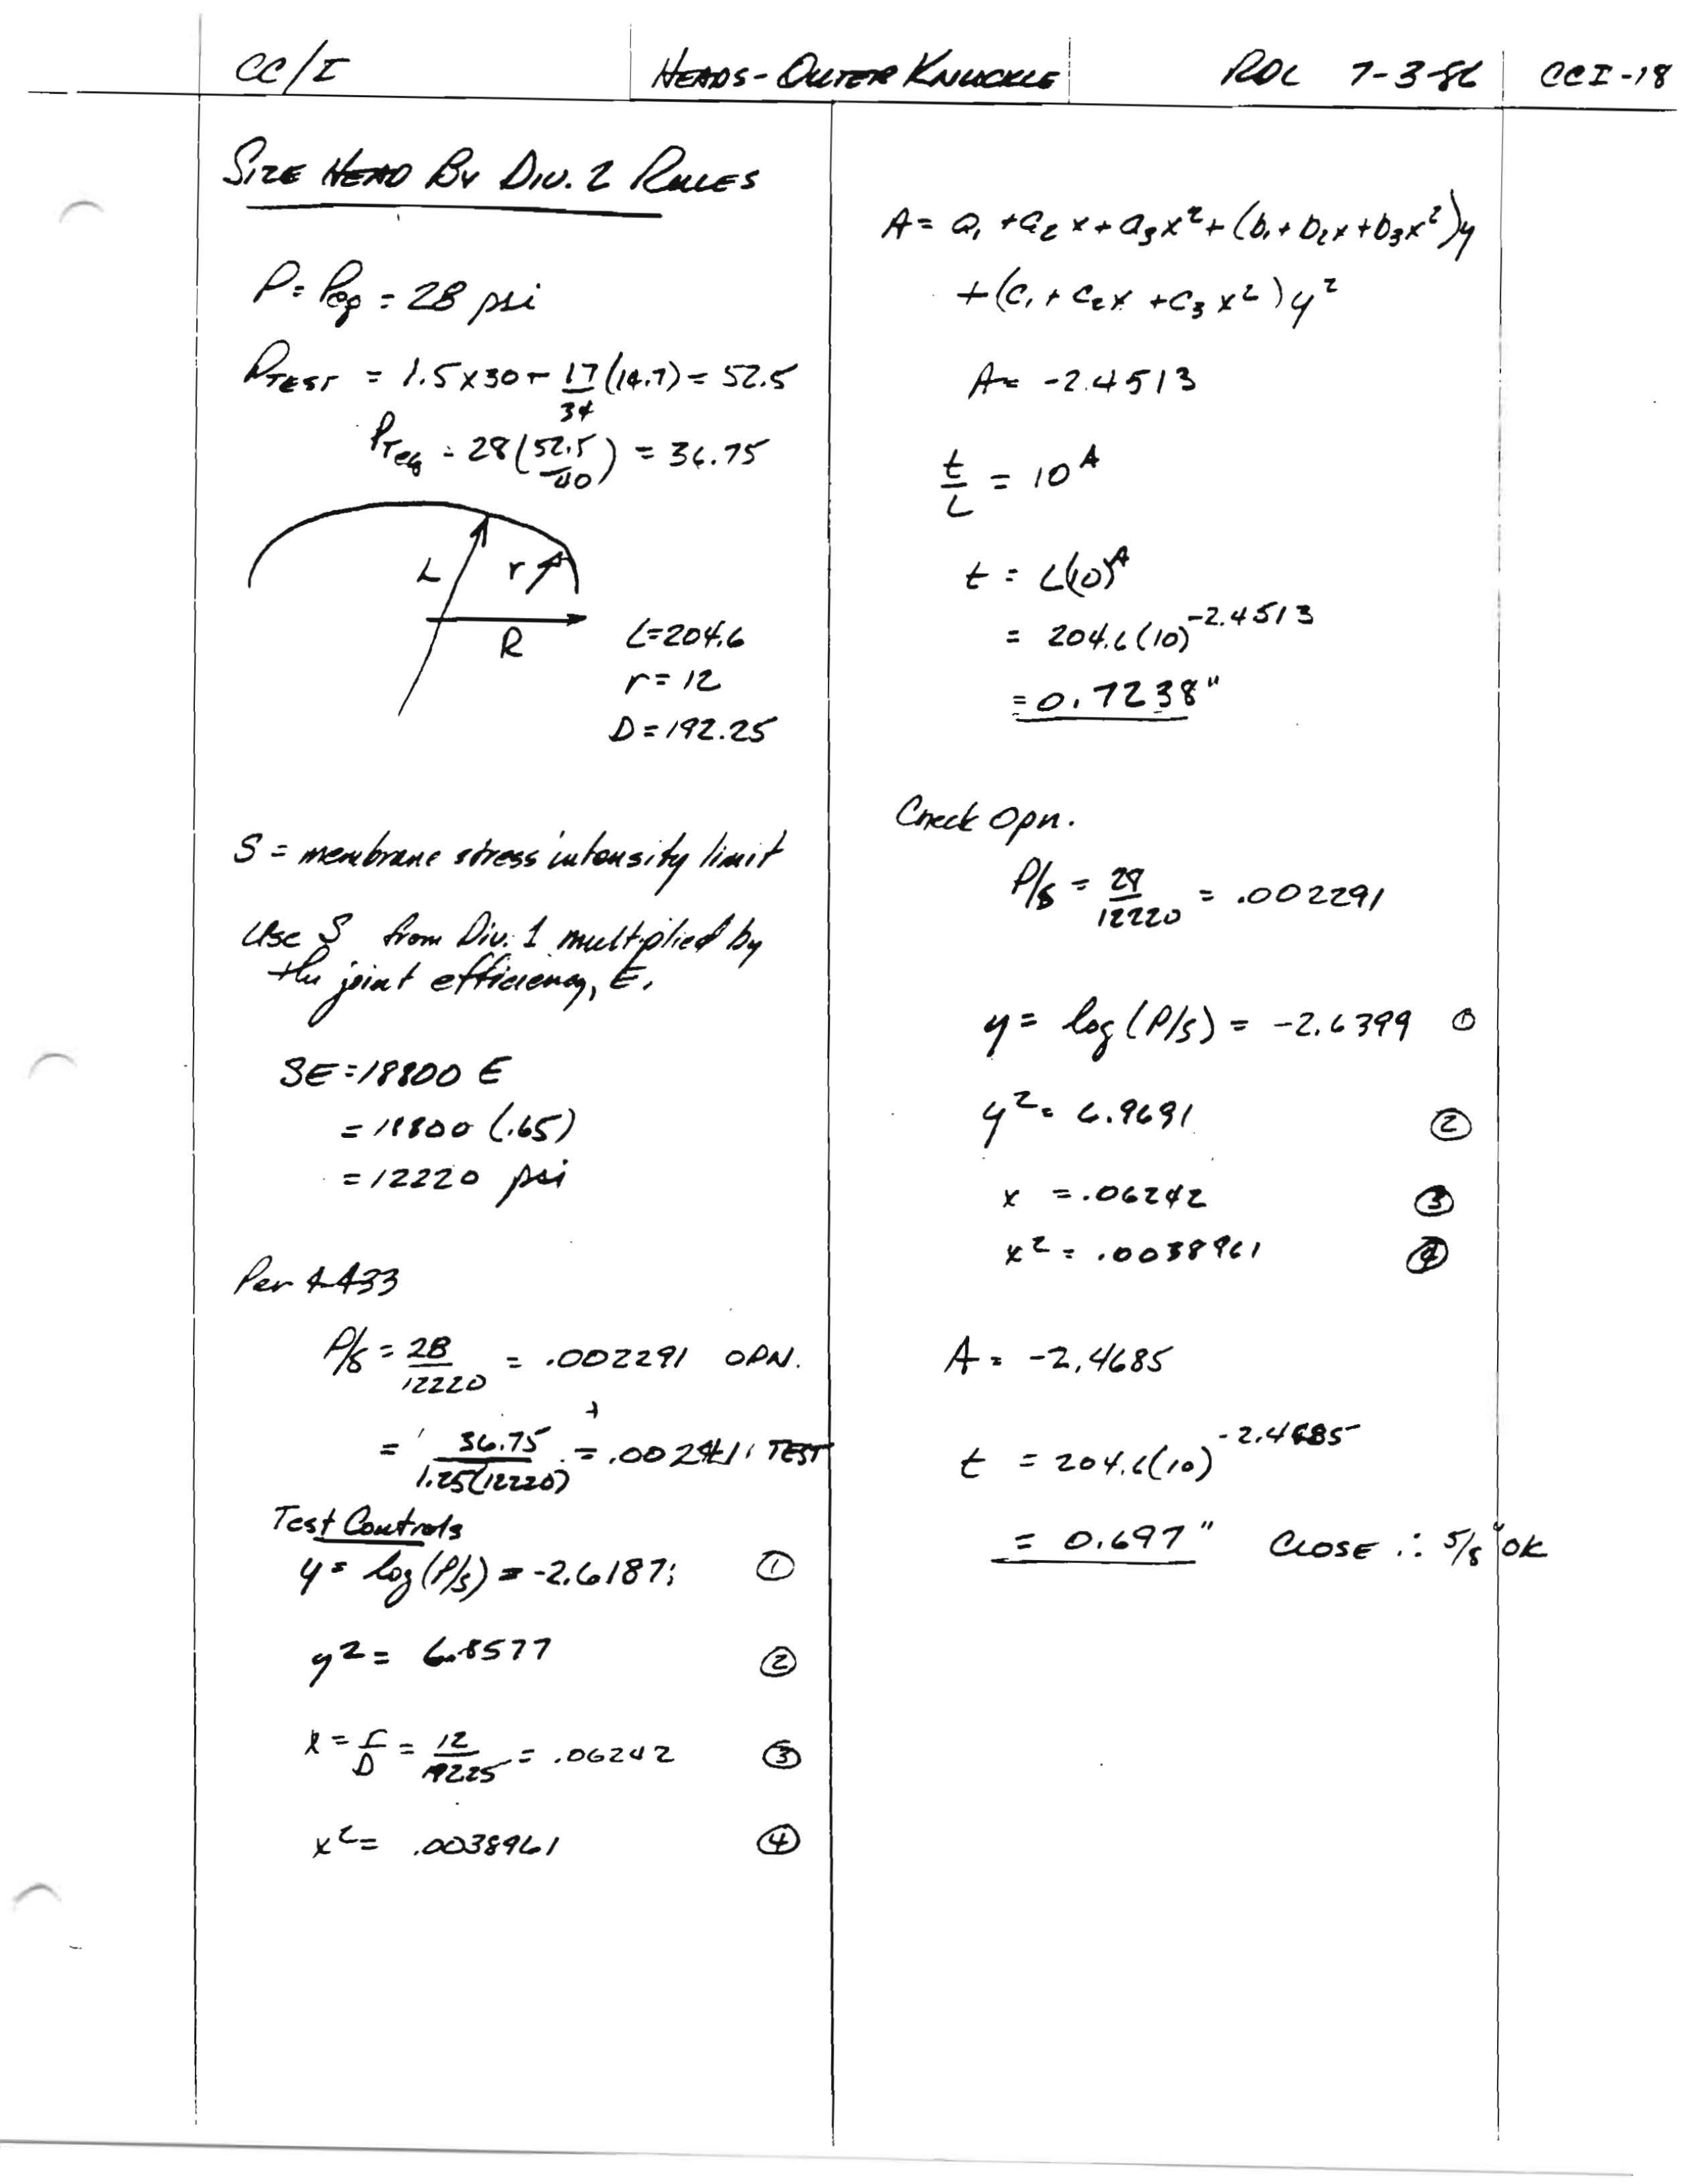 CC/I
HEADS-OUTER KNUCKLE
RDL 7-3-86
CCI-18
SIZE HEAD BY DIV. 2 RULES
P = Peq = 28 psi
PTEST = 1.5x30 + 17/34 (14.7) = 52.5
PTeq = 28(52.5/40) = 36.75
L r
R
L=204.6
r = 12
D = 192.25
S = membrane stress intensity limit
Use S from Div. 1 multiplied by
the joint efficiency, E.
SE = 18800 E
= 18800 (.65)
= 12220 psi
Per 4-433
P/S = 28/12220 = .002291 OPN.
= 36.75/1.25(12220) = .00241 TEST
Test Controls
y = log(P/S) = -2.6187; ①
y² = 6.8577 ②
x = r/D = 12/192.25 = .06242 ③
x² = .0038961 ④
A = a₁ + a₂x + a₃x² + (b₁ + b₂x + b₃x²)y
+ (c₁ + c₂x + c₃x²)y²
A = -2.4513
t/L = 10^A
t = L(10)^A
= 204.6(10)^-2.4513
= 0.7238"
Check Opn.
P/S = 28/12220 = .002291
y = log(P/S) = -2.6399 ①
y² = 6.9691 ②
x = .06242 ③
x² = .0038961 ④
A = -2.4685
t = 204.6(10)^-2.4685
= 0.697" CLOSE ∴ 5/8" OK